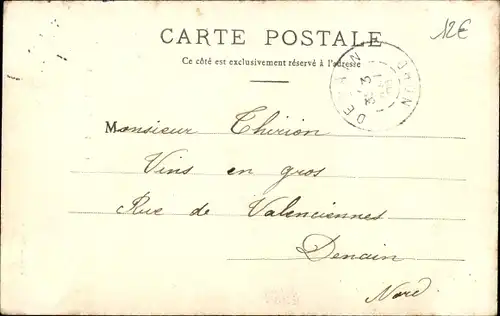 12€
CARTE POSTALE
Ce côté est exclusivement réservé à l'adresse
DENAIN NORD
Monsieur Thirion
Vins en gros
Rue de Valenciennes
Denain
Nord